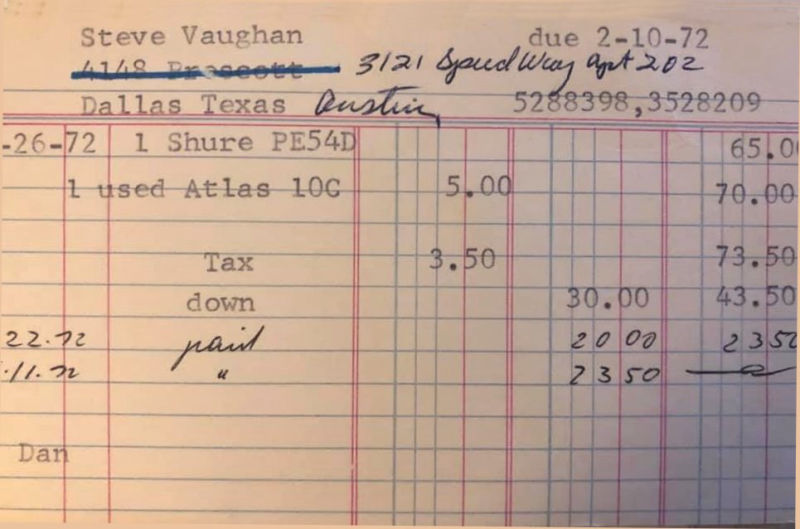 Steve Vaughan due 2-10-72
4148 Prescott 3121 SpeedWay apt 202
Dallas Texas Austin 5288398,3528209
-26-72 1 Shure PE54D 65.00
1 used Atlas 10C 5.00 70.00
Tax 3.50 73.50
down 30.00 43.50
22.72 paid 20 00 23 50
.11.72 " 23 50 —0—
Dan